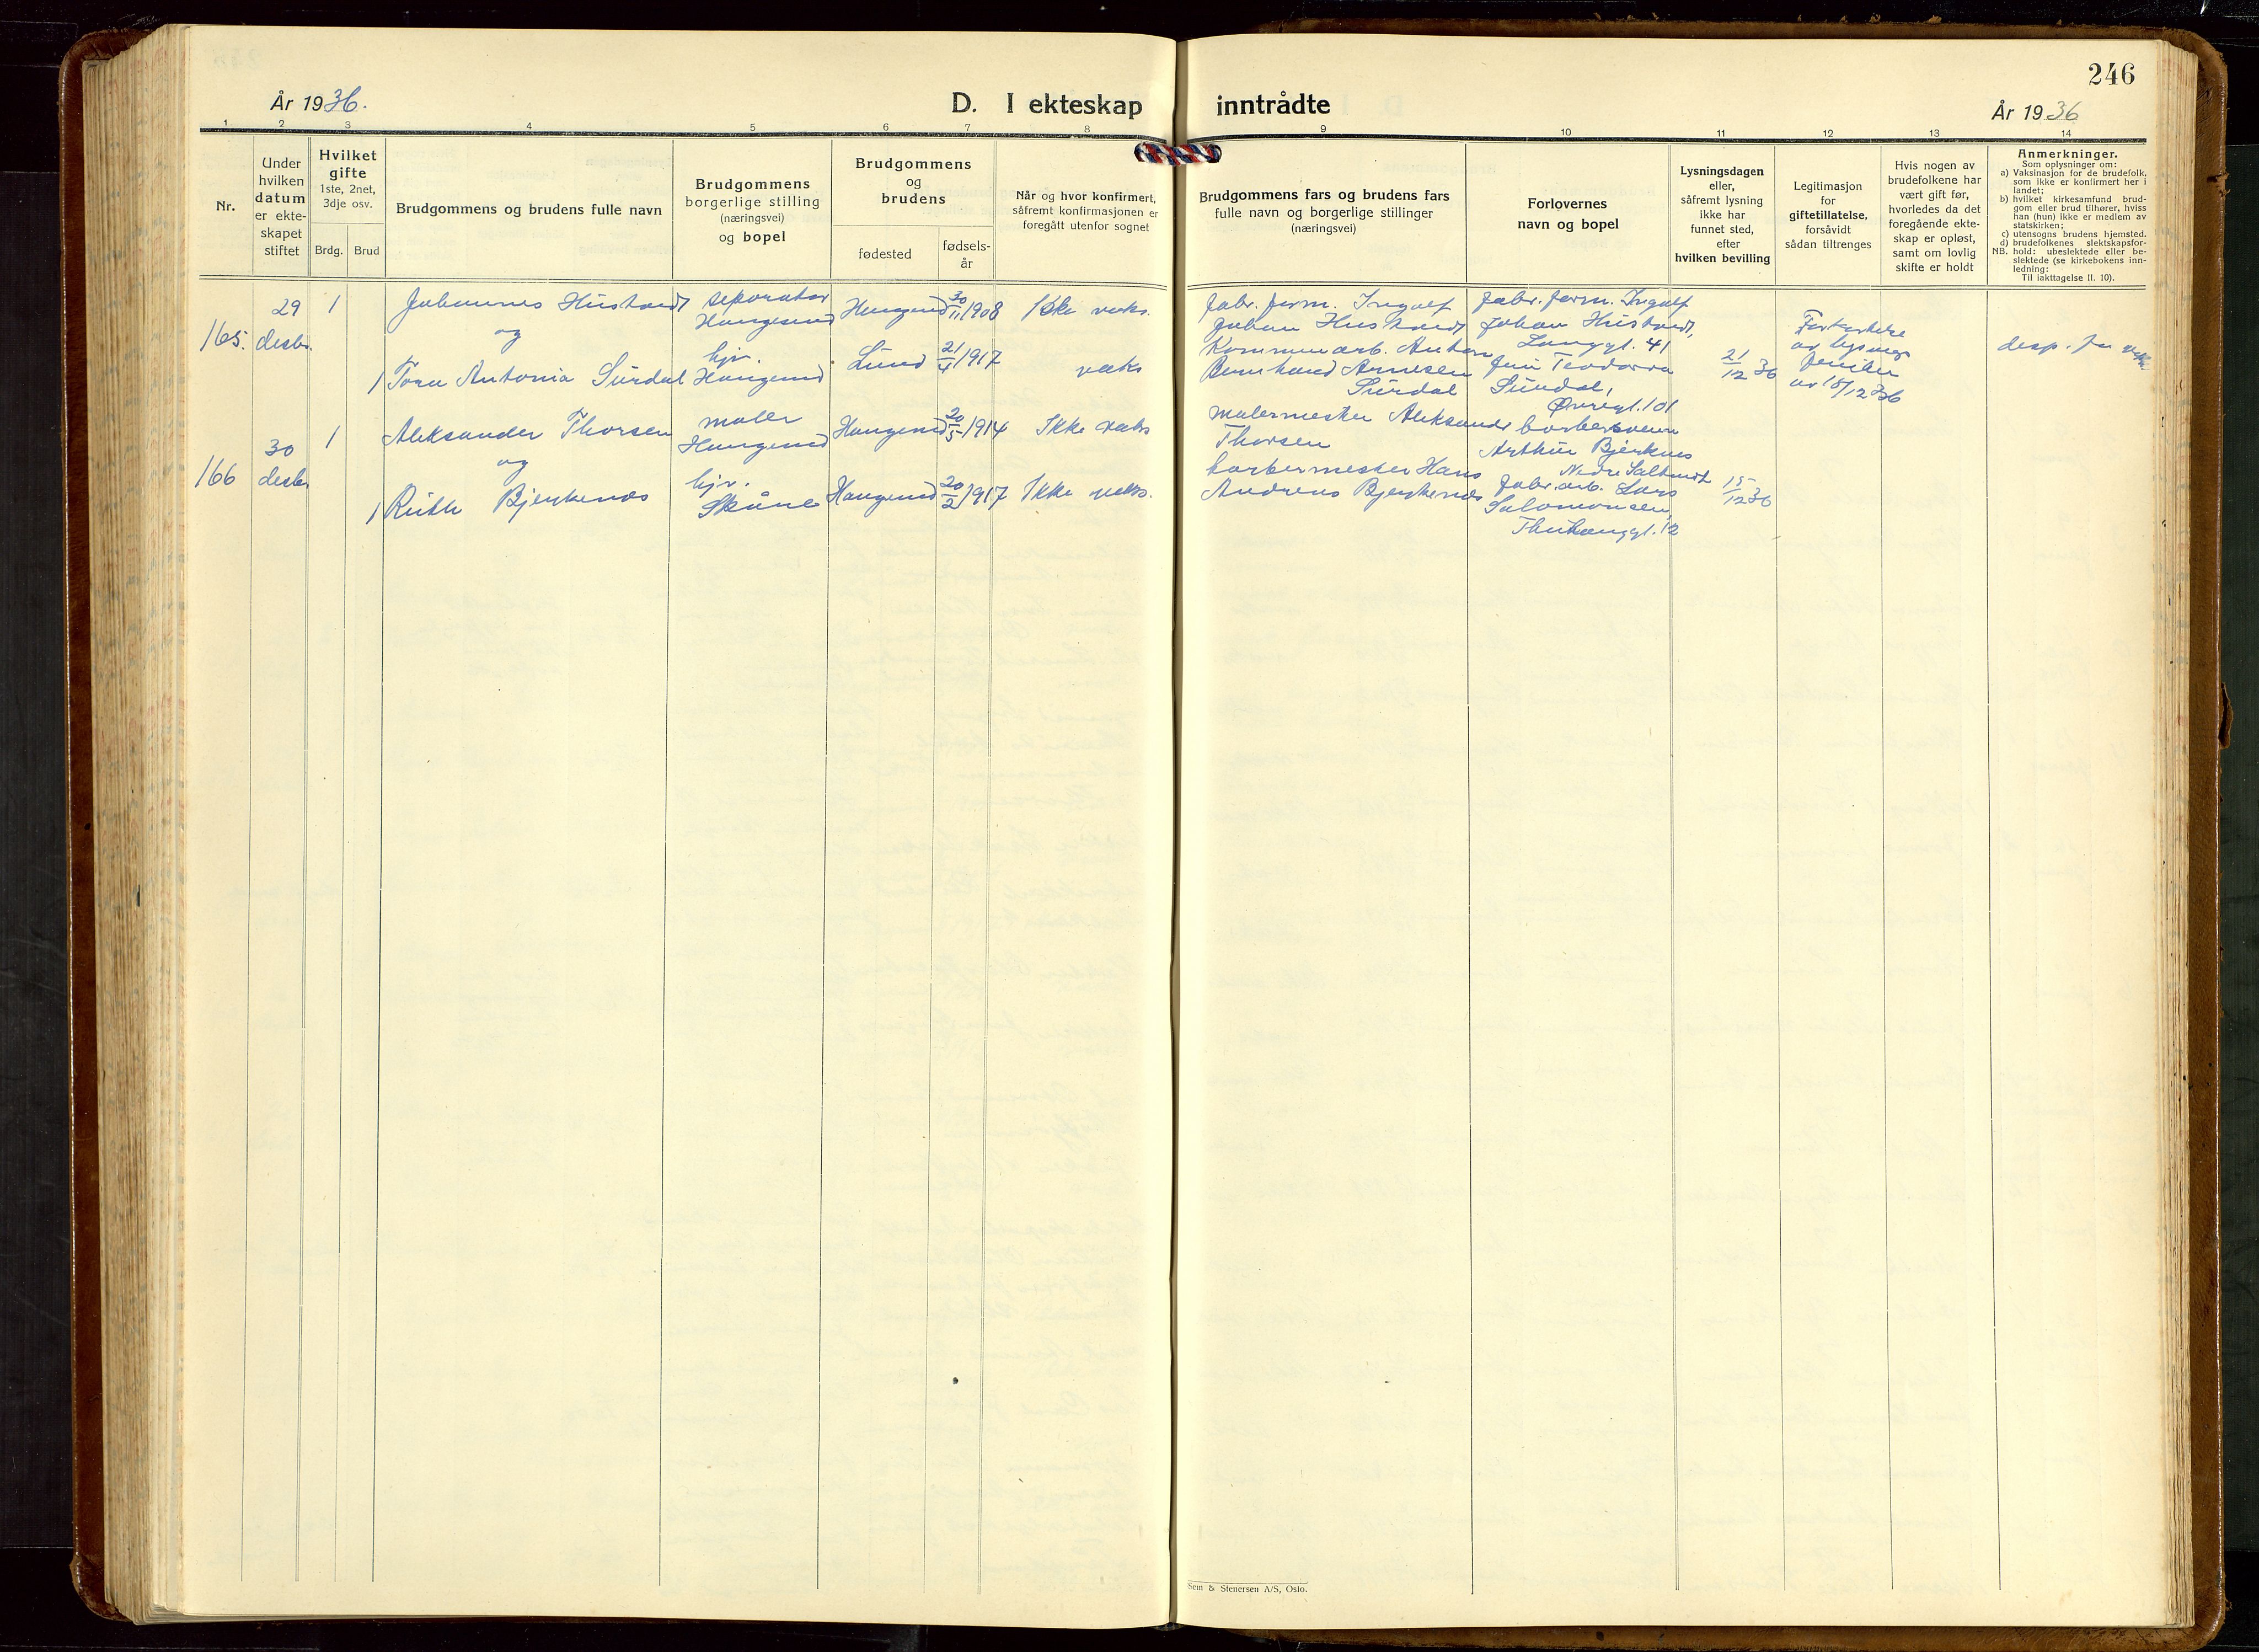 246
År 1936.
D. I ekteskap inntrådte
År 1936
1 2 3 4 5 6 7 8 9 10 11 12 13 14
Nr.
Under
hvilken
datum
er ekte-
skapet
stiftet
Hvilket
gifte
1ste, 2net,
3dje osv.
Brdg. Brud
Brudgommens og brudens fulle navn
Brudgommens
borgerlige stilling
(næringsvei)
og bopel
Brudgommens
og
brudens
fødested
fødsels-
år
Når og hvor konfirmert,
såfremt konfirmasjonen er
foregått utenfor sognet
Brudgommens fars og brudens fars
fulle navn og borgerlige stillinger
(næringsvei)
Forlovernes
navn og bopel
Lysningsdagen
eller,
såfremt lysning
ikke har
funnet sted,
efter
hvilken bevilling
Legitimasjon
for
giftetillatelse,
forsåvidt
sådan tiltrenges
Hvis nogen av
brudefolkene har
vært gift før,
hvorledes da det
foregående ekte-
skap er opløst,
samt om lovlig
skifte er holdt
Anmerkninger.
Som oplysninger om:
a) Vaksinasjon for de brudefolk.
som ikke er konfirmert her i
landet;
b) hvilket kirkesamfund brud-
gom eller brud tilhører, hviss
han (hun) ikke er medlem av
statskirken;
c) utensogns brudens hjemsted.
d) brudefolkenes slektskapsfor-
NB. hold: ubeslektede eller be-
slektede (se kirkebokens inn-
ledning:
Til iakttagelse II. 10).
165.
29
desbr.
1
Johannes Hustvedt
og
1 Tora Antonia Surdal
separatør
Haugesund
hjv.
Haugesund
Haugesund 30/11 1908
Lund 21/4 1917
Ikke vaks.
vaks
Fabr. form. Ingolf
Johan Hustvedt
Kommunearb. Anton
Bernhard Arnesen
Surdal
Fabr. form. Ingolf
Johan Hustvedt,
Langgt. 41
Teodorra
Surdal,
Øvregt. 101
21/12 36
av lysnings
av 18/12 36
desp. for
166
30
desbr
1
Aleksander Thorsen
og
1 Ruth Bjerkenes
maler
Haugesund
hjv.
Skåre
Haugesund 20/5 1914
Haugesund 20/2 1917
Ikke vaks
Ikke vaks.
malermester Aleksander
Thorsen
barbermester Hans
Andreas Bjerkenes
barbersvenn
Arthur Bjerknes
Fabr. arb. Lars
Salomonsen,
15/12 36
Sem & Stenersen A/S, Oslo.